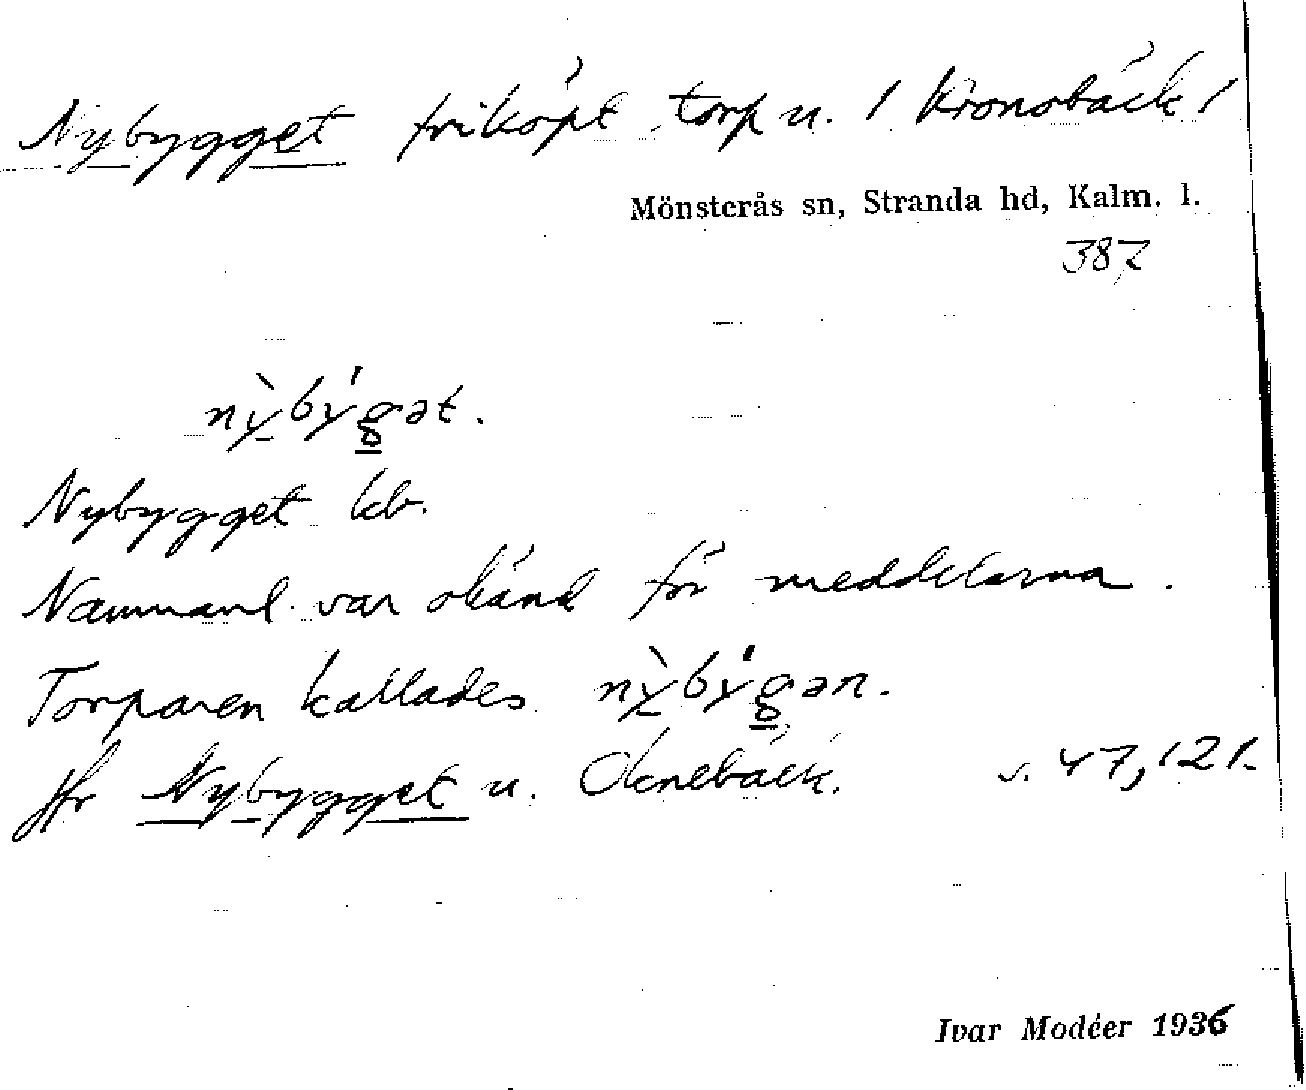 Nybygget friköpt torp u. / Kronobäck /
Mönsterås sn, Stranda hd, Kalm. l.
387
nỳbýgət.
Nybygget kb.
Namnanl. var okänd för meddelarna.
Torparen kallades nỳbýgən.
Jfr Nybygget u. Oknebäck. s. 47, 121.
Ivar Modéer 1936